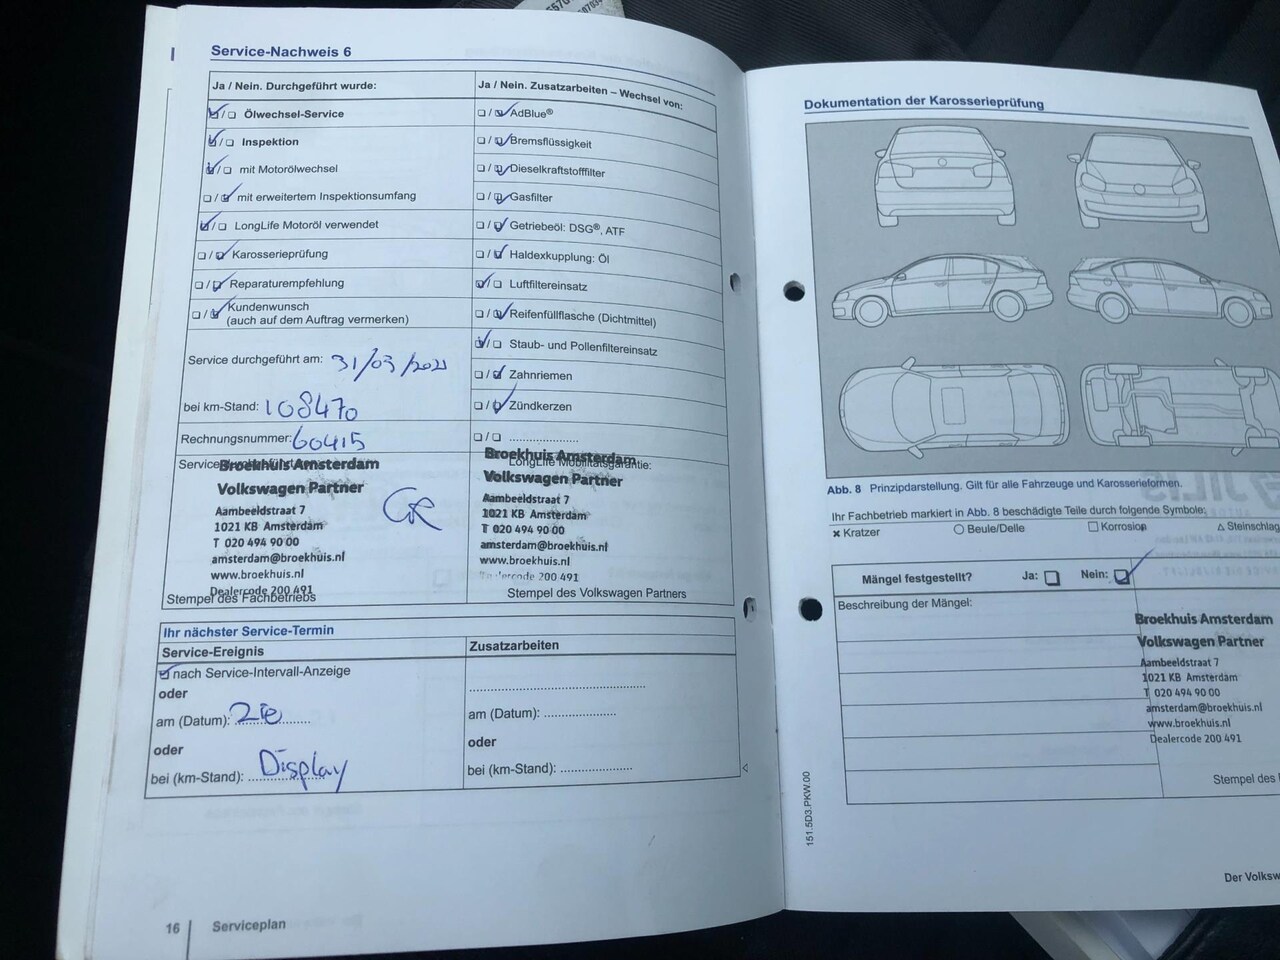 Service-Nachweis 6
Ja / Nein. Durchgeführt wurde:
Ölwechsel-Service
Inspektion
mit Motorölwechsel
mit erweitertem Inspektionsumfang
LongLife Motoröl verwendet
Karosserieprüfung
Reparaturempfehlung
Kundenwunsch
(auch auf dem Auftrag vermerken)
Service durchgeführt am: 31/03/2021
bei km-Stand: 108470
Rechnungsnummer: 60415
Broekhuis Amsterdam
Volkswagen Partner
Aambeeldstraat 7
1021 KB Amsterdam
T 020 494 90 00
amsterdam@broekhuis.nl
www.broekhuis.nl
Dealercode 200 491
Stempel des Fachbetriebs
Ja / Nein. Zusatzarbeiten – Wechsel von:
AdBlue®
Bremsflüssigkeit
Dieselkraftstofffilter
Gasfilter
Getriebeöl: DSG®, ATF
Haldexkupplung: Öl
Luftfiltereinsatz
Reifenfüllflasche (Dichtmittel)
Staub- und Pollenfiltereinsatz
Zahnriemen
Zündkerzen
LongLife Mobilitätsgarantie:
Broekhuis Amsterdam
Volkswagen Partner
Aambeeldstraat 7
1021 KB Amsterdam
T 020 494 90 00
amsterdam@broekhuis.nl
www.broekhuis.nl
Dealercode 200 491
Stempel des Volkswagen Partners
Ihr nächster Service-Termin
Service-Ereignis
nach Service-Intervall-Anzeige
oder
am (Datum): Zie
oder
bei (km-Stand): Display
Zusatzarbeiten
am (Datum):
oder
bei (km-Stand):
16 Serviceplan
Dokumentation der Karosserieprüfung
Abb. 8 Prinzipdarstellung. Gilt für alle Fahrzeuge und Karosserieformen.
Ihr Fachbetrieb markiert in Abb. 8 beschädigte Teile durch folgende Symbole:
× Kratzer ○ Beule/Delle □ Korrosion △ Steinschlag
Mängel festgestellt? Ja: Nein:
Beschreibung der Mängel:
Broekhuis Amsterdam
Volkswagen Partner
Aambeeldstraat 7
1021 KB Amsterdam
T 020 494 90 00
amsterdam@broekhuis.nl
www.broekhuis.nl
Dealercode 200 491
Stempel des
151.5D3.PKW.00
Der Volksw